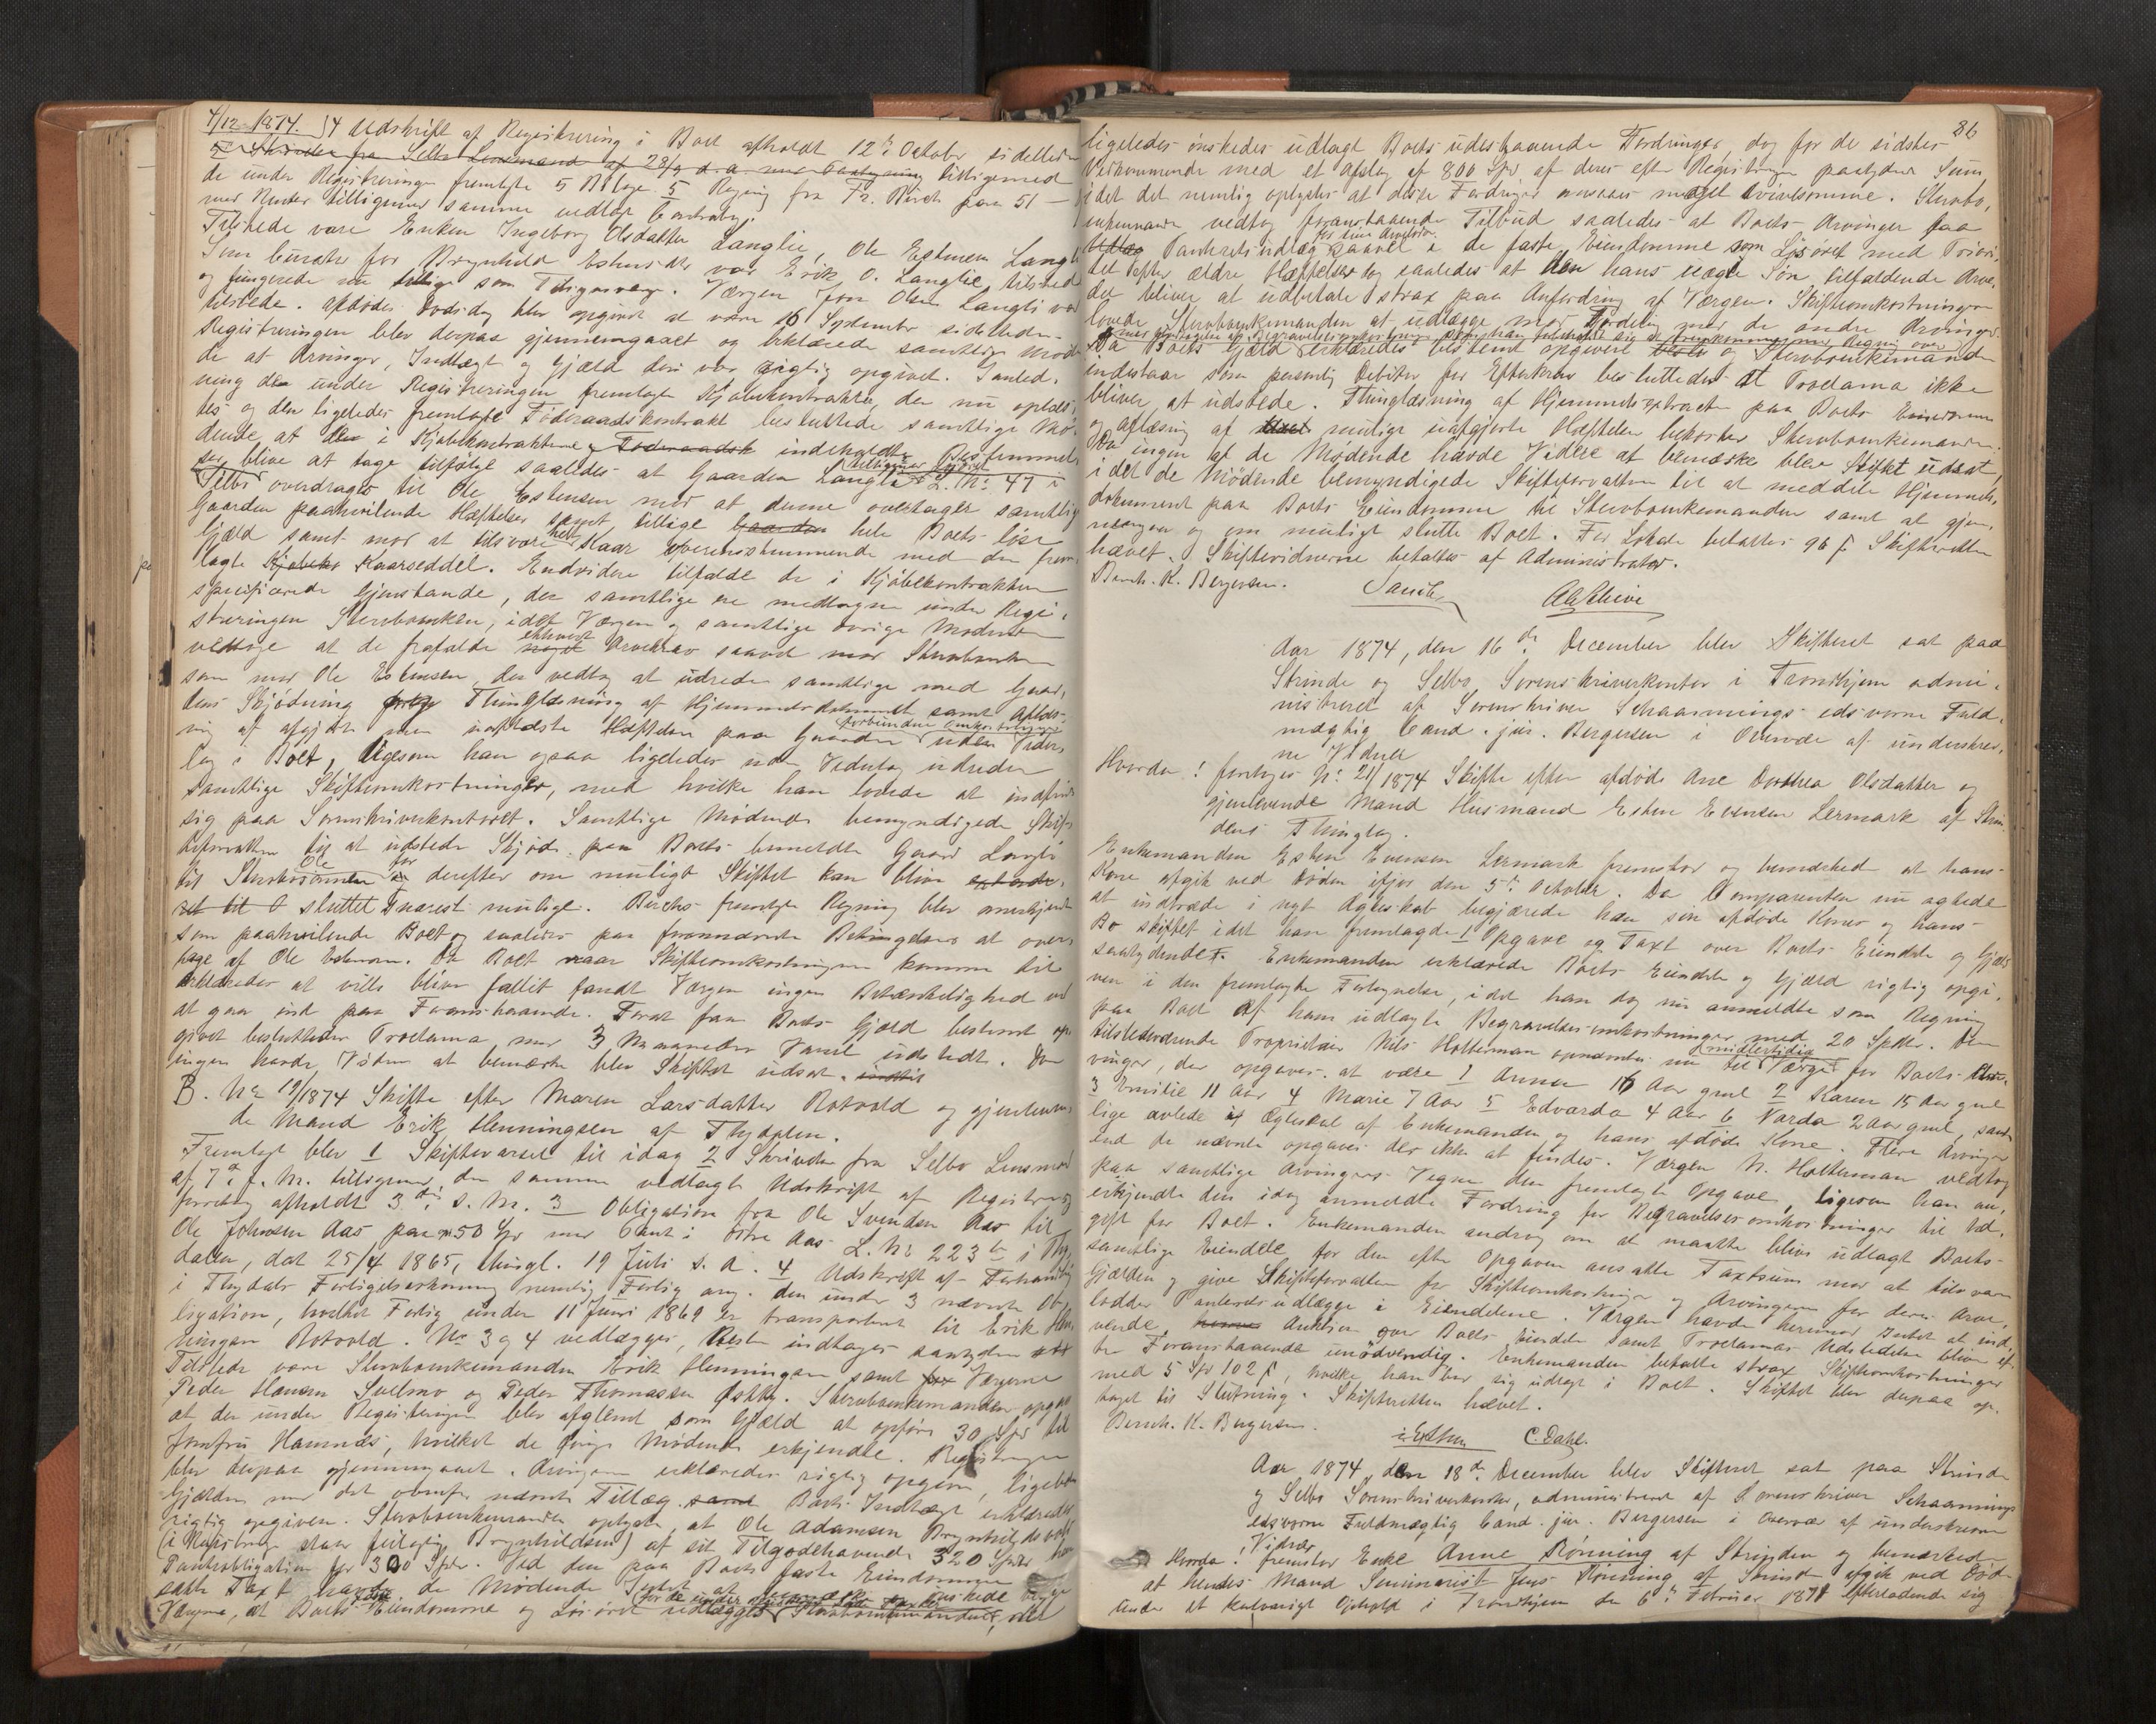 4/12 1874. 4 Udskrift af Registrering i Boet afholdt 12te Oktober sidstleden
de under Registreringen fremlagte 5 Bilage 5 Regning fra Fr. Birch paa 51 –
med Renter tilligemed samme vedlagt Contrabog.
Tilstede vare Enken Ingeborg Olsdatter Langlie, Ole Estensen Langli
Som Curator for Brynhild Estensdtr var Erik O. Langlie tilstede
og fungerede nu tillige som Værge. Værgen Jon Olsen Langli var
tilstede. Afdødes Dødsdag blev opgivet at være 16 September sidstleden.
Registreringen blev derpaa gjennemgaaet og erklærede samtlige Møden-
de at Arvinger, Indtægt og Gjæld deri var rigtig opgivet. I Anled-
ning den under Registreringen fremlagte Kjøbekontrakt, der nu oplæs-
tes og den ligeledes fremlagte Føderaadskontrakt besluttede samtlige Mø-
dende at de i Kjøbekontrakten Føderaadsk indeholdte Bestemmel-
ser blive at tage tilfølge saaledes at Gaarden Langli L. No 47 i
Selbo overdrages til Ole Estensen mod at denne overtager samtlige
Gaarden paahvilende Hæftelser samt tillige Gaarden hele Boets løse
Gjæld samt mod at tilsvare Kaar overensstemmende med den frem-
lagte Kjøbeko Kaarseddel. Endvidere tilfalde de i Kjøbekontrakten
specificerede Gjenstande, der samtlige ere medtagne under Regi-
streringen Stervboenken, idet Værgen og samtlige øvrige Mødende
vedtoge at de frafalde noget ethvert Arvekrav saavel mod Stervboenken
som mod Ole Estensen, der vedtog at udrede samtlige med Gaar-
dens Skjødning Thinglæsning af Hjemmelsdokument samt Aflæs-
ning af afgjorte men uaflæste Hæftelser paa Gaarden forbundne Omkostninger uden Veder-
lag i Boet, ligesom han ogsaa ligeledes uden Vederlag udreder
samtlige Skifteomkostninger, med hvilke han lovede at indfinde
sig paa Sorenskriverkontoret. Samtlige Mødende bemyndigede Skif-
teforvalteren til at udstede Skjøde paa Boets bemeldte Gaard Langli
til Stervbosønnen Ole for derefter om muligt Skiftet kan blive
sluttet snarest muligt. Birchs fremlagte Regning blev anerkjendt
som paahvilende Boet og saaledes paa fornævnte Betingelser at over-
tage af Ole Estensen. Da Boet naar Skifteomkostningerne komme til
erklæredes at ville blive fallit fandt Værgen ingen Betænkelighed ved
at gaa ind paa Foranstaaende. Forat faa Boets Gjæld bestemt op-
givet besluttedes Proclama med 3 Maaneders Varsel udstedt. Da
ingen havde Videre at bemærke blev Skiftet udsat.
B. No 19/1874 Skifte efter Maren Larsdatter Rotvold og gjenleven-
de Mand Erik Henningsen af Thydalen.
Fremlagt blev 1 Skiftevarsel til idag 2 Skrivelse fra Selbo Lensmand
af 7de f. M. tilligemed den samme vedlagte Udskrift af Registrerings
forretning afholdt 3die s. M. 3 Obligation fra Ole Svendsen Aas til
Ole Johnsen Aas paa 50 Spd med Pant i Østre Aas L. No 223b i Thy-
dalen, dat 25/4 1865, thingl. 19 Juli s. A. 4 Udskrift af Forhandling
i Thydals Forligelseskommission nemlig Forlig ang. den under 3 nævnte Ob-
ligation, hvilket Forlig under 11 Juni 1869 er transporteret til Erik Hen-
ningsen Rotvold. No 3 og 4 vedlægges, Resten indtages saalydende
Tilstede vare Stervboenkemanden Erik Henningsen samt Værgerne
Peder Hansen Svelmo og Peder Thomassen Østby. Stervboenkemanden opgav
at der under Registreringen blev afglemt som Gjæld at opføre 30 Spd til
Jomfru Hamnæs, hvilket de øvrige Mødende erkjendte. Registreringen
blev derpaa gjennemgaaet. Arvingerne erklæredes rigtig opgivne, ligeledes
Gjælden med det ovenfor nævnte Tillæg samt Boets Indtægt erklæredes
rigtig opgiven. Stervboenkemanden oplyste at Ole Adamsen Brynhildsvold
(i Registrering staar feilagtig Brynhildsen) af sit Tilgodehavende 320 Spdr har
Panteobligation for 300 Spdr. Ved den paa Boets faste Eiendomme
satte Taxt havde de Mødende Intet at bemærke ønskede begge
Værgerne, at Boets faste Eiendomme og Løsøret udlægges Stervboenkemanden, der
86
ligeledes ønskedes udlagt Boets udestaaende Fordringer, dog for de sidstes
Vedkommende med et Afslag af 800 Spd af deres efter Registreringen paalydende Sum,
idet det nemlig oplystes at disse Fordringer ansaaes meget tvivlsomme. Stervbo-
enkemanden vedtog foranstaaende Tilbud saaledes at Boets Arvinger faa
Panteretsudlæg for sine Arvelodder saavel i de faste Eiendomme som Løsøret med Priori-
tet efter ældre Hæftelser dog saaledes at den hans uægte Søn tilfaldende Arve-
del bliver at udbetale strax paa Anfordring af Værgen. Skifteomkostningerne
lovede Stervboenkemanden at udlægge mod Fordeling med de andre Arvinger
Da Boets Gjæld erklæredes bestemt opgivet og Stervboenkemanden
indestaar som personlig Debitor for Efterkrav besluttedes at Proclama ikke
bliver at udstede. Thinglæsning af Hjemmelsextracten paa Boets Eiendomme
og aflæsning af mulige uafgjorte Hæftelser bekoster Stervboenkemanden.
Da ingen af de Mødende havde Videre at bemærke blev Skiftet udsat,
idet de Mødende bemyndigede Skifteforvalteren til at meddele Hjemmels-
dokument paa Boets Eiendomme til Stervboenkemanden samt at gjen-
nemgaa og om muligt slutte Boet. For Lokale betaltes 96 ſ. Skifteretten
hævet. Skiftevidnerne betaltes af Administrator.
Bernh. K. Bergersen.
Aar 1874, den 16de December blev Skifteret sat paa
Strinde og Selbo Sorenskriverkontor i Trondhjem admi-
nistreret af Sorenskriver Schaannings edsvorne Fuld-
mægtig Cand. jur. Bergersen i Overvær af underskrev-
ne Vidner
Hvorda! foretoges No 21/1874 Skifte efter afdøde Ane Dorthea Olsdatter og
gjenlevende Mand Husmand Esten Evensen Lermark af Strin-
dens Thinglag.
Enkemanden Esten Evensen Lermark fremstod og bemærkede at hans
Kone afgik ved Døden ifjor den 5te Oktober. Da Comparenten nu agtede
at indtræde i nyt Ægteskab begjærede han sin afdøde Kones og hans
Bo skiftet idet han fremlagde 1 Opgave og Taxt over Boets Eiendele og Gjæld
saalydende. Enkemanden erklærede Boets Eiendele og Gjæld rigtig opgi-
ven i den fremlagte Fortegnelse, idet han dog nu anmeldte som Regning
paa Boet af ham udlagte Begravelsesomkostninger med 20 Spdlr. Den
tilstedeværende Proprietair Nils Holterman opnævntes nu til midlertidig Værge for Boets Ar-
vinger, der opgaves at være 1 Anna 16 Aar gml 2 Karen 15 Aar gml
3 Emilie 11 Aar 4 Marie 7 Aar 5 Edvarda 4 Aar 6 Varda 2 Aar gml, samt-
lige avlede i Ægteskab af Enkemanden og hans afdøde Kone. Flere Arvinger
end de nævnte opgaves der ikke at findes. Værgen N. Holterman vedtog
paa samtlige Arvingers Vegne den fremlagte Opgave, ligesom han an-
erkjendte den idag anmeldte Fordring for Begravelsesomkostninger til Ud-
gift for Boet. Enkemanden androg om at maatte blive udlagt Boets
samtlige Eiendele for den efter Opgaven ansatte Taxtsum mod at tilsvare
Gjælden og give Skifteforvalteren for Skifteomkostninger og Arvingerne for deres Arve-
lodder Panteretsudlægge i Eiendelene. Værgen havde herimod Intet at ind-
vende, Auktion over Boets Eiendele samt Proclamas Udstedelse bliver ef-
ter Foranstaaende unødvendig. Enkemanden betalte strax Skifteomkostninger
med 5 Spd 102 ſ, hvilke han bør sig udlagt i Boet. Skiftet blev derpaa op-
taget til Slutning. Skifteretten hævet.
Bernh. K. Bergersen.
C. Dahl.
Aar 1874, den 18de December blev Skifteret sat paa Strinde
og Selbo Sorenskriverkontor, administreret af Sorenskriver Schaannings
edsvorne Fuldmægtig Cand. jur. Bergersen i Overvær af underskrevne
Vidner
Hvorda! fremstod Enke Anne Rønning af Strinden og bemærkede
at hendes Mand Seminarist Jens Rønning af Strinde afgik ved Døden
under et Ophold i Trondhjem den 6te Februar 1871 efterladende sig